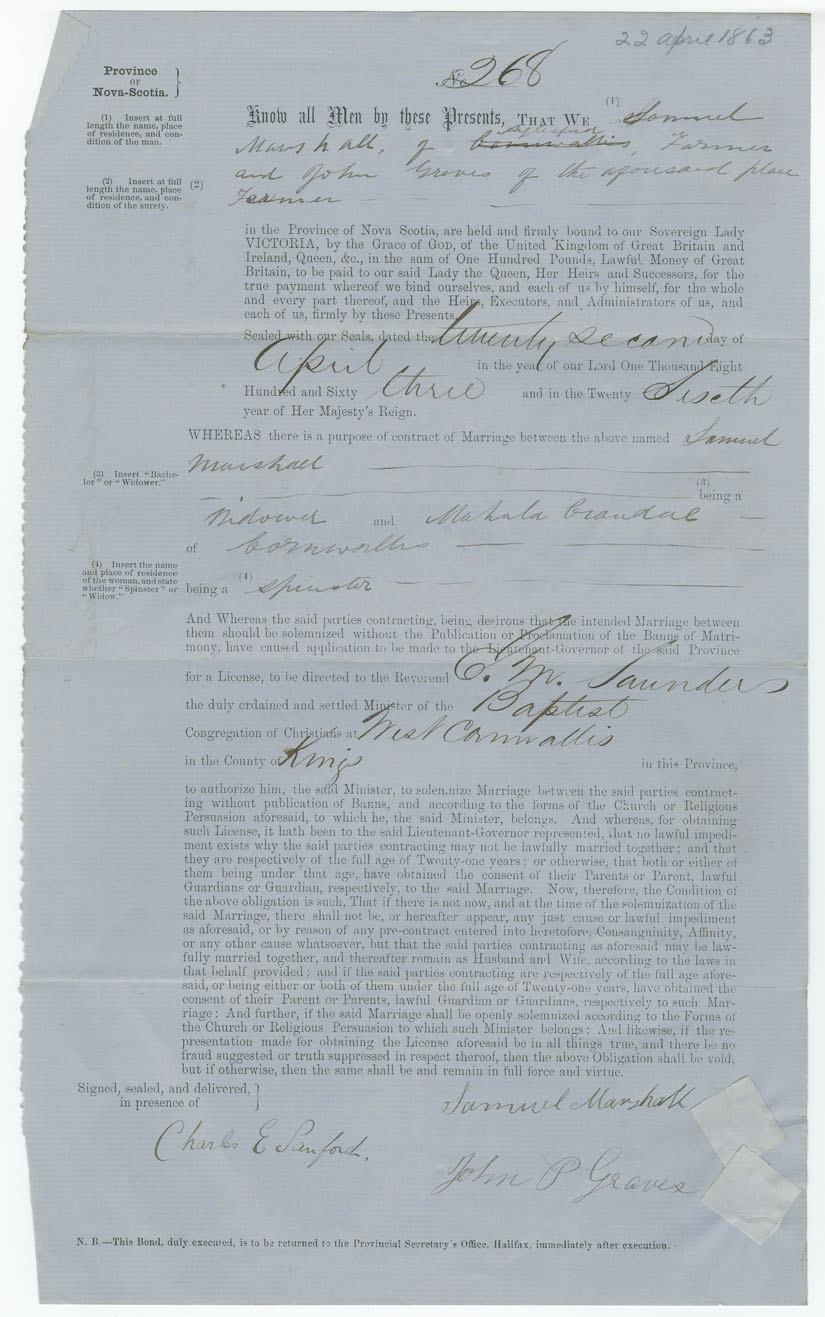 22 april 1863
Province
OF
Nova-Scotia.
No. 268
(1) Insert at full
length the name, place
of residence, and con-
dition of the man.
Know all Men by these Presents, THAT WE (1) Samuel
Marshall, of Cornwallis, Farmer
(2) Insert at full
length the name, place
of residence, and con-
dition of the surety.
(2) and John Graves of the aforesaid place
Farmer
in the Province of Nova Scotia, are held and firmly bound to our Sovereign Lady
VICTORIA, by the Grace of God, of the United Kingdom of Great Britain and
Ireland, Queen, &c., in the sum of One Hundred Pounds, Lawful Money of Great
Britain, to be paid to our said Lady the Queen, Her Heirs and Successors, for the
true payment whereof we bind ourselves, and each of us by himself, for the whole
and every part thereof, and the Heirs, Executors, and Administrators of us, and
each of us, firmly by these Presents.
Sealed with our Seals, dated the twenty second day of
April in the year of our Lord One Thousand Eight
Hundred and Sixty three and in the Twenty Sixeth
year of Her Majesty's Reign.
WHEREAS there is a purpose of contract of Marriage between the above named Samuel
Marshall
(3) Insert "Bache-
lor" or "Widower."
(3)
being a
Widower and Mahala Crandal
of Cornwallis
(4) Insert the name
and place of residence
of the woman, and state
whether "Spinster" or
"Widow."
being a (4) Spinster
And Whereas the said parties contracting, being desirous that the intended Marriage between
them should be solemnized without the Publication or Proclamation of the Banns of Matri-
mony, have caused application to be made to the Lieutenant-Governor of the said Province
for a License, to be directed to the Reverend E. M. Saunders
the duly ordained and settled Minister of the Baptist
Congregation of Christians at West Cornwallis
in the County of Kings in this Province,
to authorize him, the said Minister, to solemnize Marriage between the said parties contract-
ing without publication of Banns, and according to the forms of the Church or Religious
Persuasion aforesaid, to which he, the said Minister, belongs. And whereas, for obtaining
such License, it hath been to the said Lieutenant-Governor represented, that no lawful impedi-
ment exists why the said parties contracting may not be lawfully married together; and that
they are respectively of the full age of Twenty-one years: or otherwise, that both or either of
them being under that age, have obtained the consent of their Parents or Parent, lawful
Guardians or Guardian, respectively, to the said Marriage. Now, therefore, the Condition of
the above obligation is such, That if there is not now, and at the time of the solemnization of the
said Marriage, there shall not be, or hereafter appear, any just cause or lawful impediment
as aforesaid, or by reason of any pre-contract entered into heretofore, Consanguinity, Affinity,
or any other cause whatsoever, but that the said parties contracting as aforesaid may be law-
fully married together, and thereafter remain as Husband and Wife, according to the laws in
that behalf provided; and if the said parties contracting are respectively of the full age afore-
said, or being either or both of them under the full age of Twenty-one years, have obtained the
consent of their Parent or Parents, lawful Guardian or Guardians, respectively to such Mar-
riage: And further, if the said Marriage shall be openly solemnized according to the Forms of
the Church or Religious Persuasion to which such Minister belongs: And likewise, if the re-
presentation made for obtaining the License aforesaid be in all things true, and there be no
fraud suggested or truth suppressed in respect thereof, then the above Obligation shall be void,
but if otherwise, then the same shall be and remain in full force and virtue.
Signed, sealed, and delivered,
in presence of
Samuel Marshall
Charles E Sanford.
John P Graves
N. B.—This Bond, duly executed, is to be returned to the Provincial Secretary's Office, Halifax, immediately after execution.